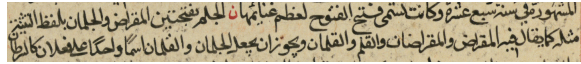 المشهور في سنة سبع عشرة وكانت تسمى فتح الفتوح لعظم غنائمها ن الجلم بفتحتين المقراض والجلمان بلفظ التثنية
مثله كما يقال فيه المقراض والمقراضان والقلم والقلمان ويجوز ان يجعل الجلمان والقلمان اسما واحدا على فعلان كالسرطان